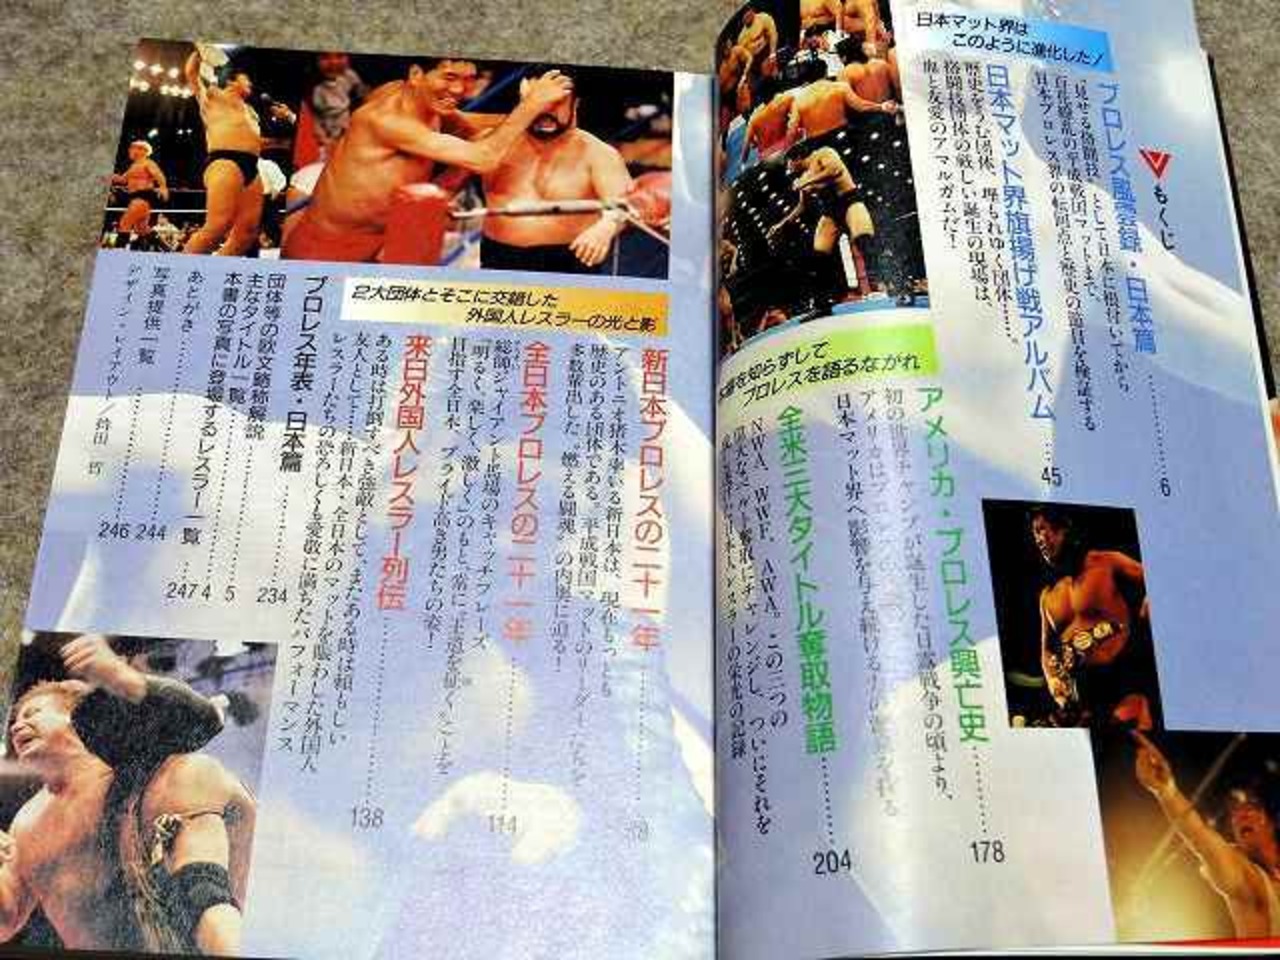 日本マット界は
このように進化した!
もくじ
プロレス風雲録・日本篇
"見せる格闘技"として日本に根付いてから
百花繚乱の平成戦国マットまで、
日本プロレス界の転回点と歴史の節目を検証する
6
日本マット界旗揚げ戦アルバム
歴史をうむ団体、埋もれゆく団体……。
格闘技団体の戦しい誕生の現場は、
血と友愛のアマルガムだ!
45
を知らずして
プロレスを語るなかれ
アメリカ・プロレス興亡史
初の世界チャンプが誕生した日露戦争の頃より、
日本マット界へ影響を与え続ける
178
全米三大タイトル奪取物語
NWA、WWF、AWA。この三つの
チャレンジし、ついにそれを
日本人レスラーの栄光の記録
204
2大団体とそこに交錯した
外国人レスラーの光と影
新日本プロレスの二十一年
アントニオ猪木率いる新日本は、現在もっとも
歴史のある団体である。平成戦国マットのリーダー
多数輩出した"燃える闘魂"の肉塊に迫る!
全日本プロレスの二十一年
総帥ジャイアント馬場のキャッチフレーズ
「明るく、楽しく、激しく」のもと、常に"王道を歩く"ことを
目指す全日本、プライド高き男たちの姿!
114
来日外国人レスラー列伝
ある時は打倒すべき強敵として、またある時は頼もしい
友人として……新日本・全日本のマットを賑わした外国人
レスラーたちの恐ろしくも愛敬に満ちたパフォーマンス
138
プロレス年表・日本篇
234
団体等の欧文略称解説
5
主なタイトル一覧
4
本書の写真に登場するレスラー一覧
247
あとがき
244
写真提供一覧
246
デザイン・レイアウト/